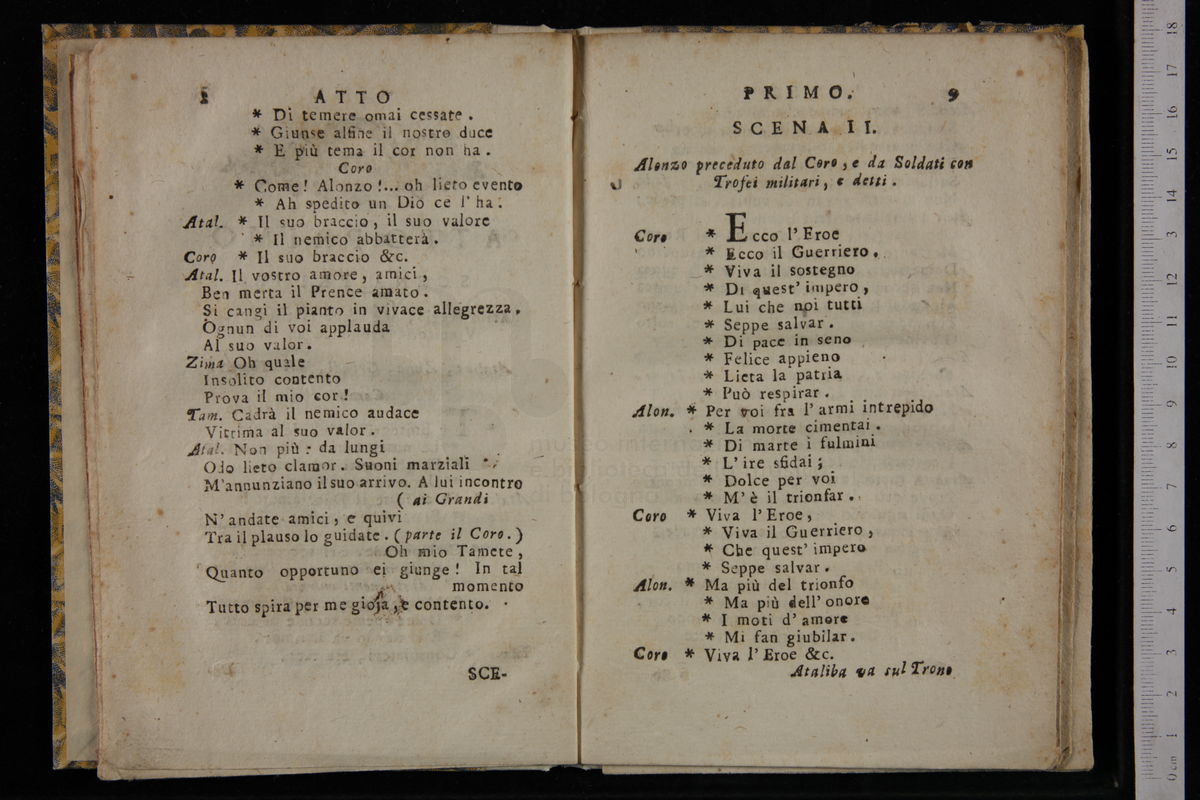 8 ATTO
* Di temere omai cessate.
* Giunse alfine il nostro duce
* E più tema il cor non ha.
Coro
* Come! Alonzo!... oh lieto evento
* Ah spedito un Dio ce l'ha.
Atal. * Il suo braccio, il suo valore
* Il nemico abbatterà.
Coro * Il suo braccio &c.
Atal. Il vostro amore, amici,
Ben merta il Prence amato.
Si cangi il pianto in vivace allegrezza.
Ognun di voi applauda
Al suo valor.
Zima Oh quale
Insolito contento
Prova il mio cor!
Tam. Cadrà il nemico audace
Vittima al suo valor.
Atal. Non più: da lungi
Odo lieto clamor. Suoni marziali
M'annunziano il suo arrivo. A lui incontro
( ai Grandi
N'andate amici, e quivi
Tra il plauso lo guidate. (parte il Coro.)
Oh mio Tamete,
Quanto opportuno ei giunge! In tal
momento
Tutto spira per me gioja, e contento.
SCE-
PRIMO. 9
SCENA II.
Alonzo preceduto dal Coro, e da Soldati con
Trofei militari, e detti.
Coro * Ecco l'Eroe
* Ecco il Guerriero.
* Viva il sostegno
* Di quest' impero,
* Lui che noi tutti
* Seppe salvar.
* Di pace in seno
* Felice appieno
* Lieta la patria
* Può respirar.
Alon. * Per voi fra l'armi intrepido
* La morte cimentai.
* Di marte i fulmini
* L'ire sfidai;
* Dolce per voi
* M'è il trionfar.
Coro * Viva l'Eroe,
* Viva il Guerriero,
* Che quest' impero
* Seppe salvar.
Alon. * Ma più del trionfo
* Ma più dell'onore
* I moti d'amore
* Mi fan giubilar.
Coro * Viva l'Eroe &c.
Ataliba va sul Trono